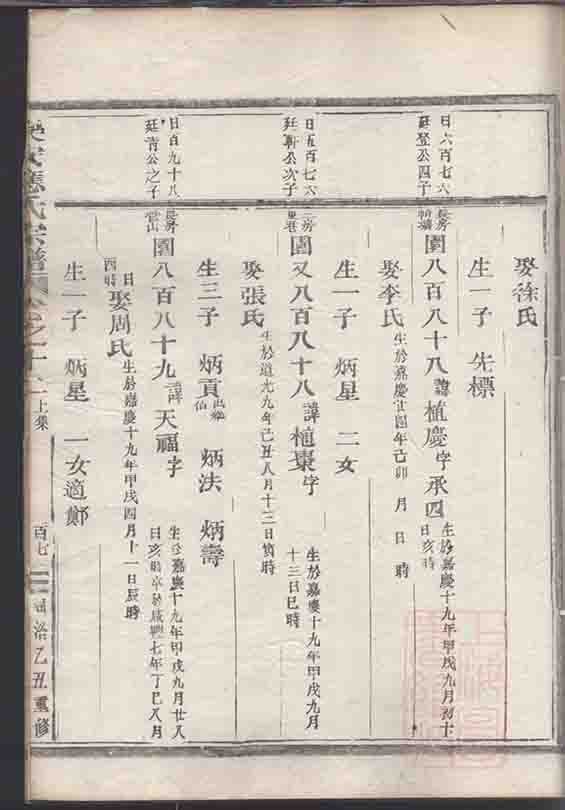 娶徐氏
生一子 先標
日六百七六
廷登公四子
長房
圓八百八十八諱植慶字承四
生於嘉慶十九年甲戌九月初十
日亥時
娶李氏 生於嘉慶廿四年己卯 月 日 時
生一子 炳星 二女
日五百七六
廷軒公次子
圓又八百八十八諱植棗字
生於嘉慶十九年甲戌九月
十三日巳時
娶張氏 生於道光九年己丑八月十三日 時
生三子 炳貢 炳法 炳壽
日百九十八
廷青公之子
長房
圓八百八十九諱天福字
生於嘉慶十九年甲戌九月廿八
日亥時卒於咸豐七年丁巳八月
日
酉時
娶周氏 生於嘉慶十九年甲戌四月十一日辰時
生一子 炳星 一女適鄭
應氏宗譜 卷之十 上集 百七 乙丑重修